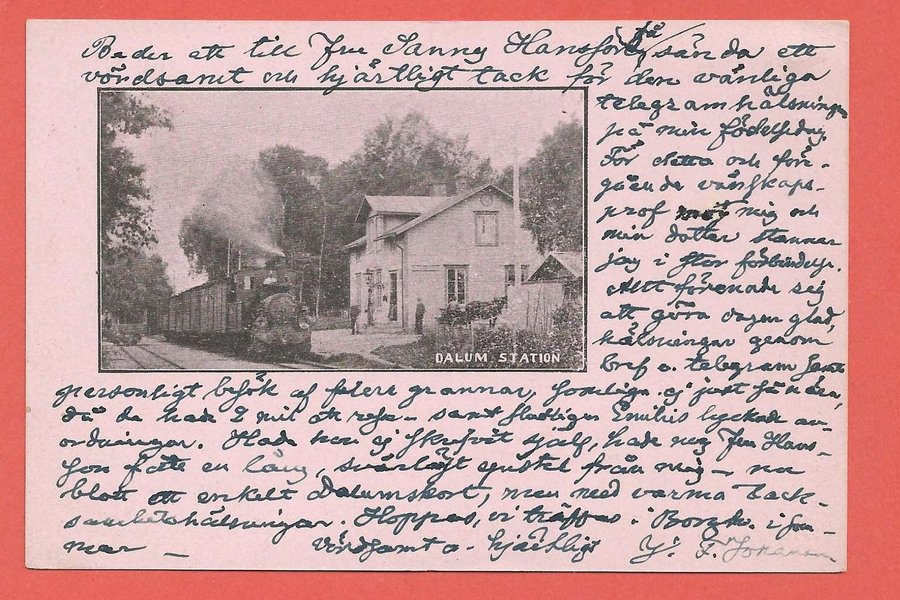 Beder att till Fru Sanny Hansson få sända ett
vördsamt och hjärtligt tack för den vänliga
telegramhälsningen
på min födelsedag.
För detta och före-
gående vänskaps-
prof mot mig och
min dotter stannar
jag i stor förbindelse.
Allt förenade sig
att göra dagen glad,
hälsningar genom
bref o. telegram samt
DALUM STATION
personligt besök af flere grannar, somliga ej just så nära,
då de hade 2 mil att resa – samt Emilis lyckade an-
ordningar. Hade hon ej skrifvit själf, hade nog Fru Hans-
son fått en lång, svårläst epistel från mig – nu
blott ett enkelt Dalumskort, men med varma tack-
samhetshälsningar. Hoppas, vi träffas i i som-
mar – Vördsamt o. hjärtligt F. Johansson